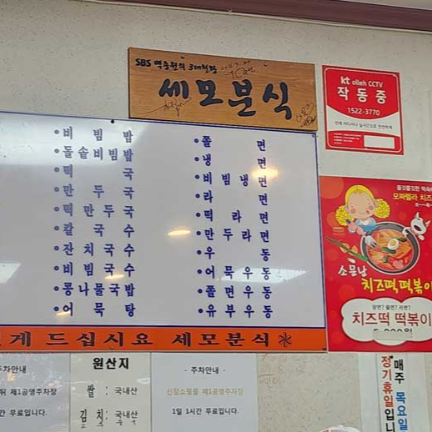 SBS
세모분식
kt olleh CCTV
작동중
1522-3770
• 비빔밥
• 돌솥비빔밥
• 떡국
• 만두국
• 떡만두국
• 칼국수
• 잔치국수
• 비빔국수
• 콩나물국밥
• 어묵탕
• 쫄면
• 냉면
• 비빔냉면
• 라면
• 떡라면
• 만두라면
• 우동
• 어묵우동
• 쫄면우동
• 유부우동
게 드십시요 세모분식
모짜렐라 치즈
소문난
치즈떡,떡볶이
치즈떡 떡볶이
주차안내
제1공영주차장
무료입니다.
원산지
쌀 : 국내산
김치 국내산
· 주차안내 ·
신정쇼핑몰 제1공영주차장
1일 1시간 무료입니다.
매주 목요일
정기휴일입니